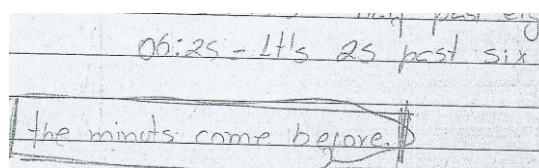 half past eig
06:25 - It's 25 past six
the minuts come before.